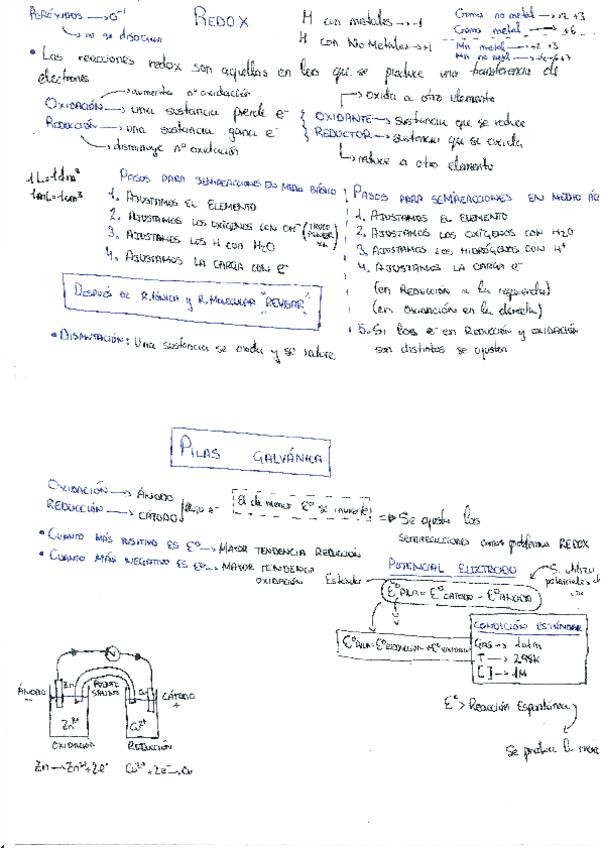 PERÓXIDOS → O⁻¹
→ no se disocian
REDOX
H con metales → -1
H con No Metales → +1
Cromo no metal → +2 +3
Cromo metal → +6
Mn metal → +2 +3
Mn no metal → +4 +6 +7
• Las reacciones redox son aquellas en las que se produce una transferencia de
electrones
→ aumenta nº oxidación
OXIDACIÓN → una sustancia pierde e⁻
REDUCCIÓN → una sustancia gana e⁻
→ disminuye nº oxidación
→ oxida a otro elemento
OXIDANTE → sustancia que se reduce
REDUCTOR → sustancia que se oxida
→ reduce a otro elemento
1L = 1dm³
1mL = 1cm³
PASOS PARA SEMIREACCIONES EN MEDIO BÁSICO
1. AJUSTAMOS EL ELEMENTO
2. AJUSTAMOS LOS OXÍGENOS CON OH⁻ (TRUCO PONER X2)
3. AJUSTAMOS LOS H CON H₂O
4. AJUSTAMOS LA CARGA CON e⁻
DESPUÉS DE R. IÓNICA Y R. MOLECULAR "REVISAR"
• DISMUTACIÓN: Una sustancia se oxida y se reduce
PASOS PARA SEMIREACCIONES EN MEDIO ÁC
1. AJUSTAMOS EL ELEMENTO
2. AJUSTAMOS LOS OXÍGENOS CON H₂O
3. AJUSTAMOS LOS HIDRÓGENOS CON H⁺
4. AJUSTAMOS LA CARGA e⁻
(en REDUCCIÓN a la izquierda)
(en OXIDACIÓN en la derecha)
5. Si los e⁻ en REDUCCIÓN y OXIDACIÓN
son distintos se ajustan
PILAS GALVÁNICA
OXIDACIÓN → ÁNODO
REDUCCIÓN → CÁTODO
flujo e⁻
El de menor E⁰ se invierte
⇒ Se ajustan las
semireacciones como problemas REDOX
• CUANTO MÁS POSITIVO ES E⁰ → MAYOR TENDENCIA REDUCCIÓN
• CUANTO MÁS NEGATIVO ES E⁰ → MAYOR TENDENCIA
OXIDACIÓN
POTENCIAL ELECTRODO
Estándar
E⁰PILA = E⁰CATODO - E⁰ANODO
potenciales
E⁰PILA = E⁰REDUCCIÓN + E⁰
CONDICIÓN ESTÁNDAR
GAS → 1atm
T → 298K
[ ] → 1M
E⁰ > Reacción Espontánea
Se produce la
V
ÁNODO
-
Zn
PUENTE
SALINO
Cu
CÁTODO
+
Zn²⁺
Cu²⁺
OXIDACIÓN
REDUCCIÓN
Zn → Zn²⁺ + 2e⁻
Cu²⁺ + 2e⁻ → Cu